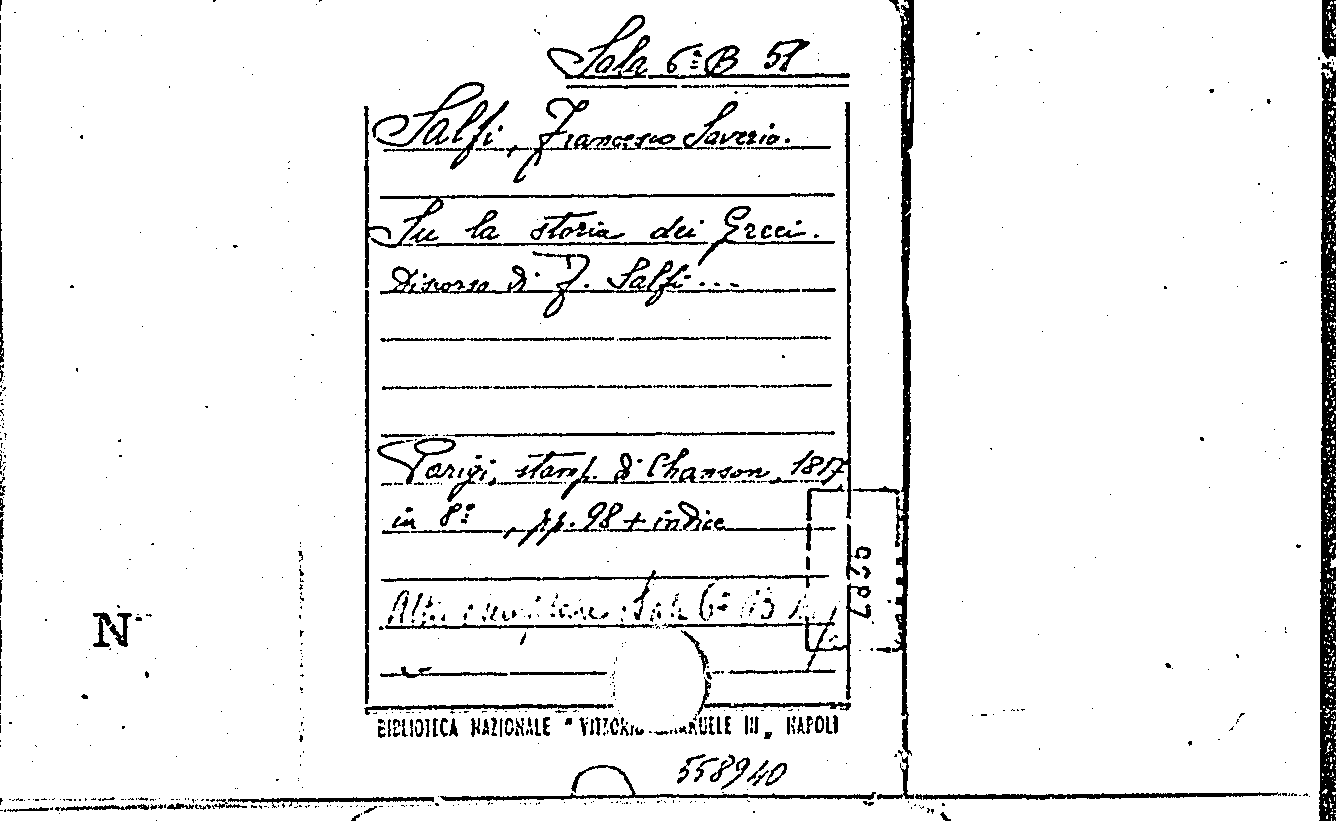 Sala 6ª B 51
Salfi, Francesco Saverio.
Su la storia dei Greci.
Discorso di F. Salfi...
Parigi, stamp. di Chanson, 1817
in 8º, pp. 98 + indice
Sala 6ª B
BIBLIOTECA NAZIONALE " VITTORIO EMANUELE III „ NAPOLI
558940
N